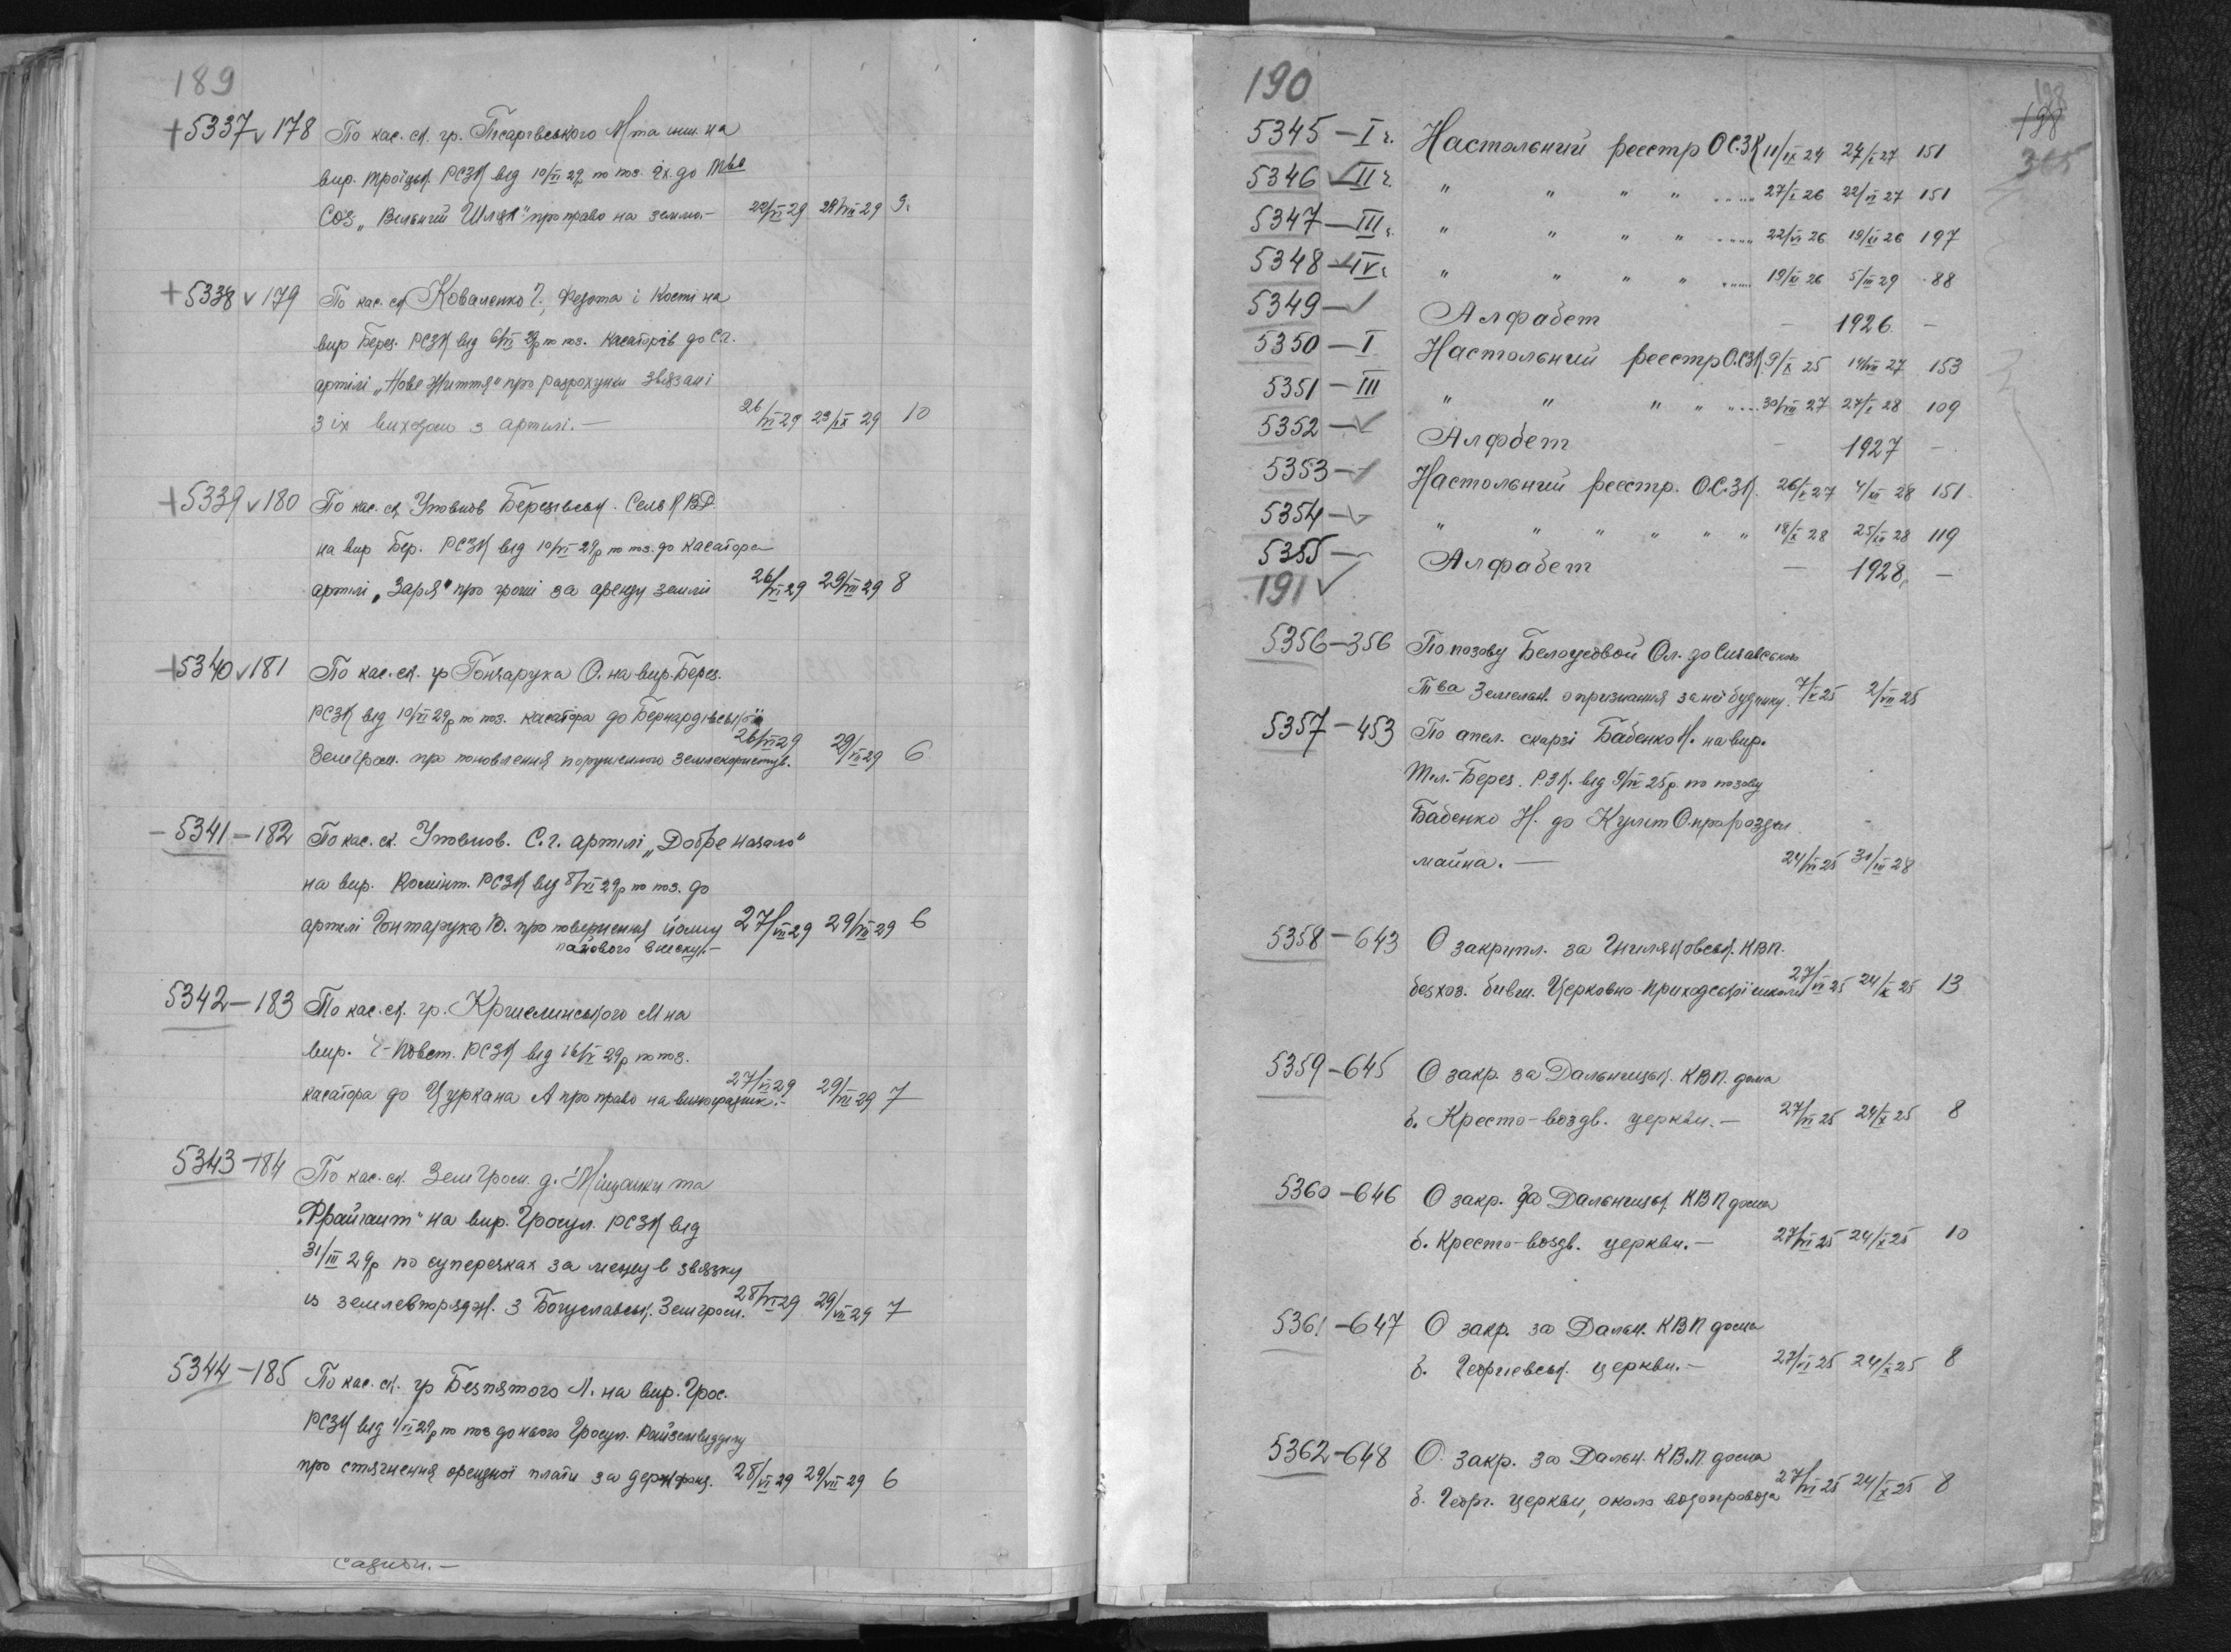 189
+5337 v 178 По кас. ск. гр. Писарівського М та инш. на
вир. Троїцьк. РСЗК від 10/VI 29р по поз. їх до Тва
СОЗ „Вільний Шлях" про право на землю.– 22/VI 29 29/VIII 29 9.
+5338 v 179 По кас. ск Коваленко Г., Федота і Кості на
вир Берез. РСЗК від 6/VI 29р по поз. касаторів до С.г.
артілі „Нове Життя" про разрохунки звязані
з їх виходом з артілі.– 26/VI 29 23/IX 29 10
+5339 v 180 По кас. ск Уповнов Березівськ. Сель КВД.
на вир Бер. РСЗК від 10/VI 29р по поз. до касатора
артілі „Заря" про гроші за аренду землі 26/VI 29 29/VIII 29 8
+5340 v 181 По кас. ск. гр Гончарука О. на вир. Берез.
РСЗК від 10/VI 29р по поз. касатора до Бернардівської
Земгром. про поновлення порушеного землекористув. 26/VI 29 29/VII 29 6
– 5341 – 182 По кас. ск. Уповнов. С.г. артілі „Добре Начало"
на вир. Комінт. РСЗК від 8/VI 29р по поз. до
артілі Гонтарука Ю. про повернення йому 27/VI 29 29/VIII 29 6
пайового внеску.–
5342 – 183 По кас. ск. гр. Кришминського М на
вир. РСЗК від 16/V 29р по поз.
касатора до Цуркана А про право на виноградник.– 27/VI 29 29/VIII 29 7
5343 – 184 По кас. ск. Земгром. д. Міщанки та
„Фрайгаит" на вир. Гросул. РСЗК від
31/III 29р по суперечках за межу в звязку
із землевпорядж. з Богуславськ. Земгром. 28/VI 29 29/VII 29 7
5344 – 185 По кас. ск. гр Безпятого М. на вир. Грос.
РСЗК від 1/VI 29р по поз до нього Гросул. Райземвідділу
про стягнення орендної плати за держфонд. 28/VI 29 29/VII 29 6
садиби.–
190
198
198
365
5345 – I ч. Настольний реестр О.С.З.К 11/IX 24 27/I 27 151
5346 – II ч. " " " " " 27/I 26 22/VI 27 151
5347 – III ч. " " " " " 22/VI 26 19/XI 26 197
5348 – IV ч. " " " " " 19/XI 26 5/III 29 88
5349 – v Алфабет – 1926 –
5350 – I Настольний реестр О.С.З.К 9/X 25 14/VIII 27 153
5351 – III " " " " " 30/VIII 27 27/I 28 109
5352 – v Алфбет – 1927 –
5353 – v Настольний реестр. О.С.З.К. 26/X 27 4/XII 28 151
5354 – v " " " " " " 18/X 28 25/XII 28 119
5355 – Алфабет – 1928, –
191 v
5356 – 356 По позову Белоусовой Ол. до Сичавського
Тва Земельн. о признання за неї будинку. 7/V 25 2/VII 25
5357 – 453 По апел. скарзі Бабенко Н. на вир.
Т.л.-Берез. РЗК. від 9/IV 25р. по позову
Бабенко Н. до Култт О. про роздел
майна. – 24/VI 25 31/III 28
5358 – 643 О закрипл. за Гниляковськ. КВП.
безхоз. бивш. Церковно-приходської школи 27/VI 25 24/X 25 13
5359 – 645 О закр. за Дальницьк. КВП. дома
б. Кресто-воздв. церкви.– 27/VI 25 24/X 25 8
5360 – 646 О закр. за Дальницьк. КВП дома
б. Кресто-воздв. церкви.– 27/VI 25 24/X 25 10
5361 – 647 О закр. за Дальн. КВП дома
б. Георгіевськ. церкви.– 27/VI 25 24/X 25 8
5362 – 648 О закр. за Дальн. К.В.П. дома
б. Георг. церкви, около водопровода 27/VI 25 24/X 25 8